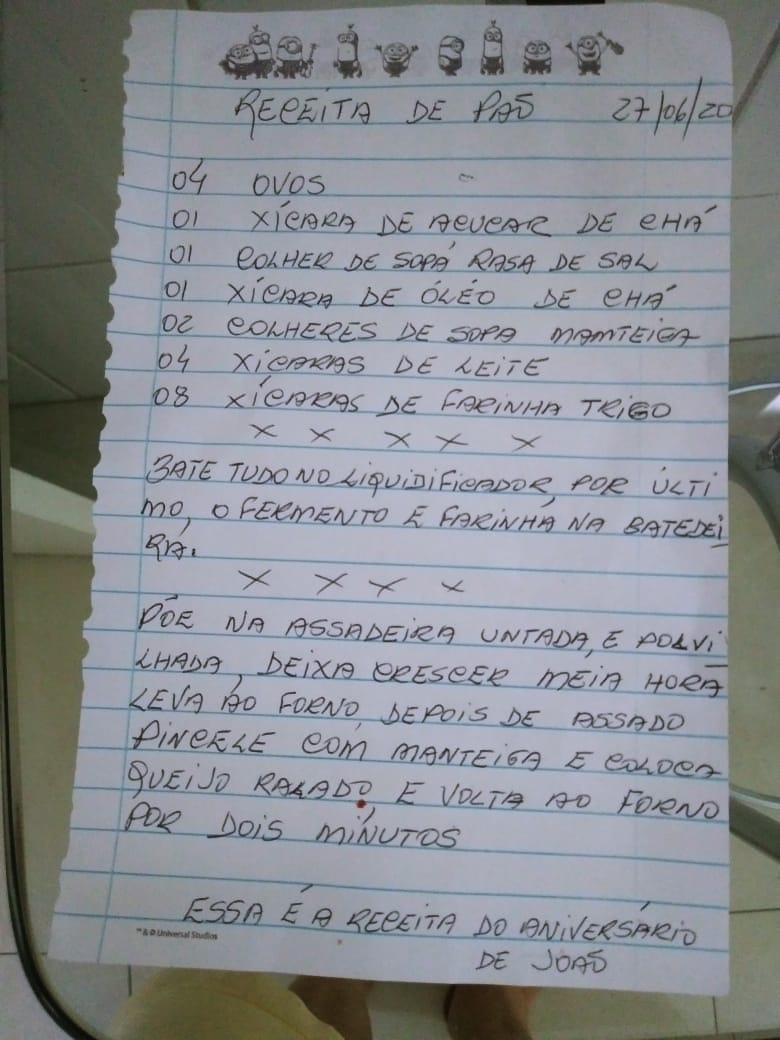 RECEITA DE PAÕ 27/06/20
04 OVOS
01 XÍCARA DE ACUCAR DE CHÁ
01 COLHER DE SOPA RASA DE SAL
01 XÍCARA DE ÓLÉO DE CHÁ
02 COLHERES DE SOPA MAMTEIGA
04 XÍCARAS DE LEITE
08 XÍCARAS DE FARINHA TRIGO
X X X X X
BATE TUDO NO LIQUIDIFICADOR, POR ÚLTI
MO, O FERMENTO E FARINHA NA BATEDEI
RA.
X X X X
PÕE NA ASSADEIRA UNTADA, E POLVI
LHADA, DEIXA CRESCER MEIA HORA
LEVA AO FORNO, DEPOIS DE ASSADO
PINCELE COM MANTEIGA E COLOCA
QUEIJO RALADO, E VOLTA AO FORNO
POR DOIS MINUTOS
ESSA É A RECEITA DO ANIVERSÁRIO
™ & © Universal Studios
DE JOAÕ